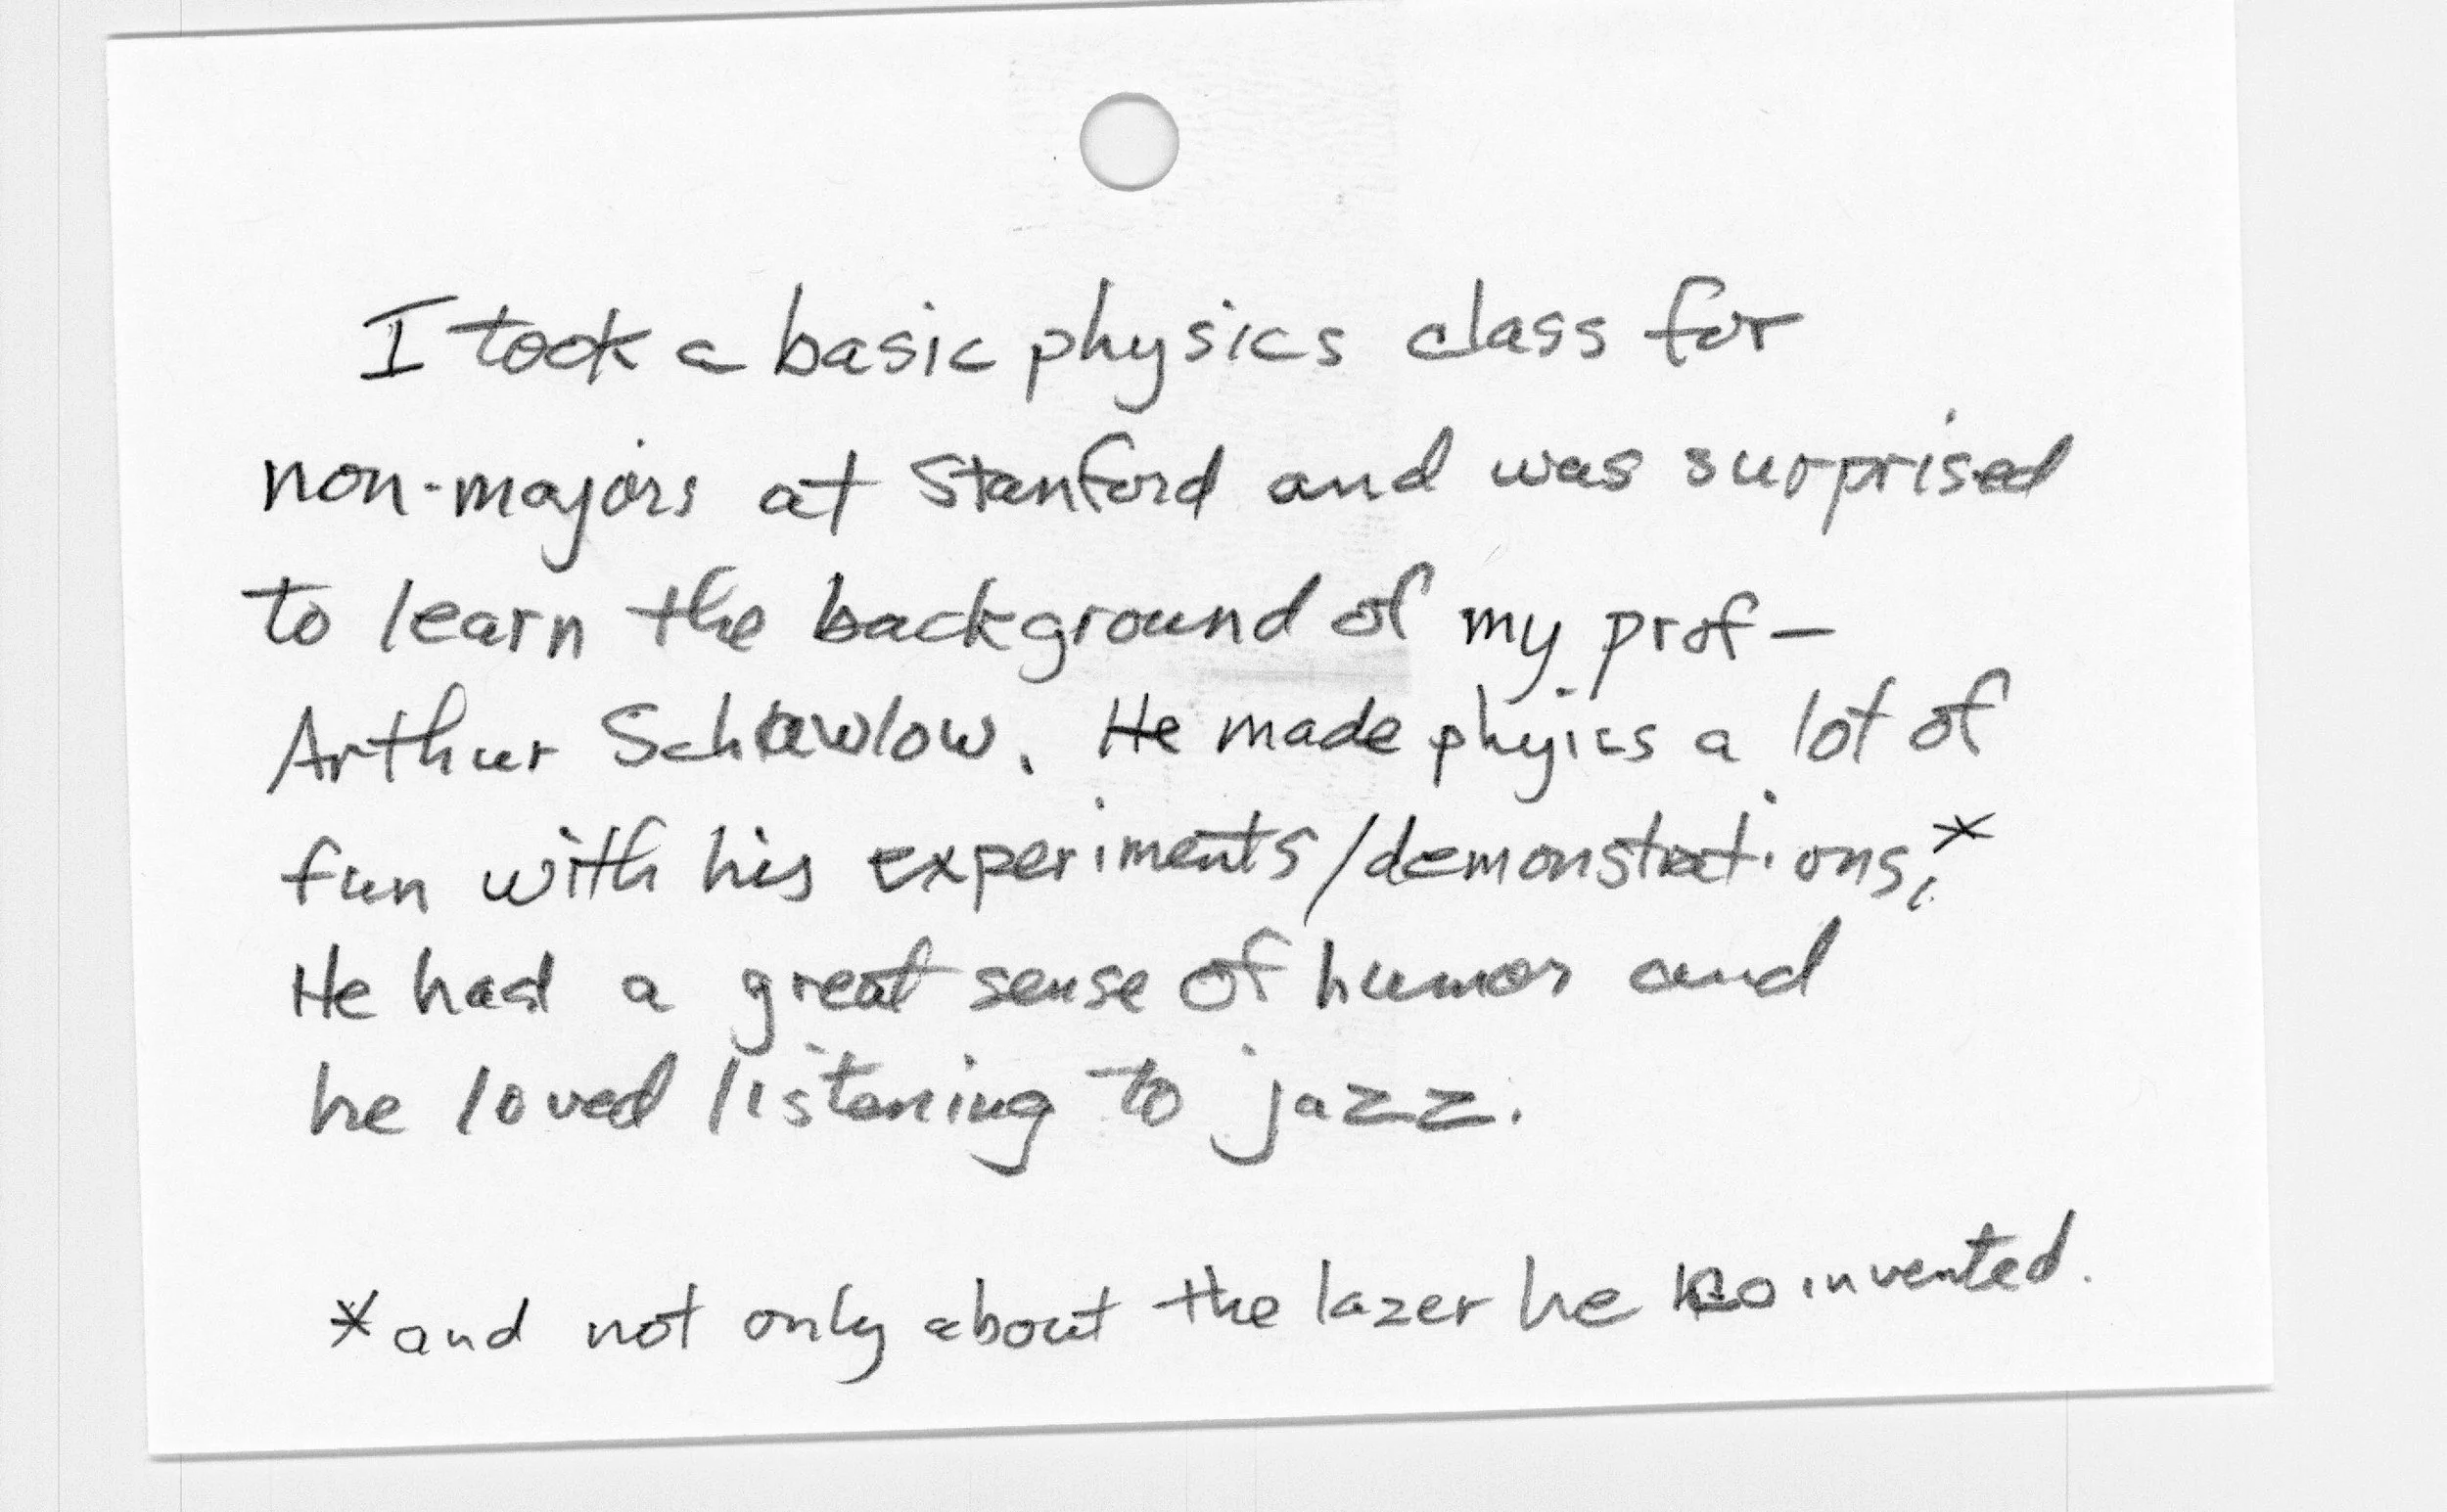 I took a basic physics class for
non-majors at Stanford and was surprised
to learn the background of my prof —
Arthur Schawlow. He made phyics a lot of
fun with his experiments/demonstrations,*
He had a great sense of humor and
he loved listening to jazz.
*and not only about the lazer he co invented.